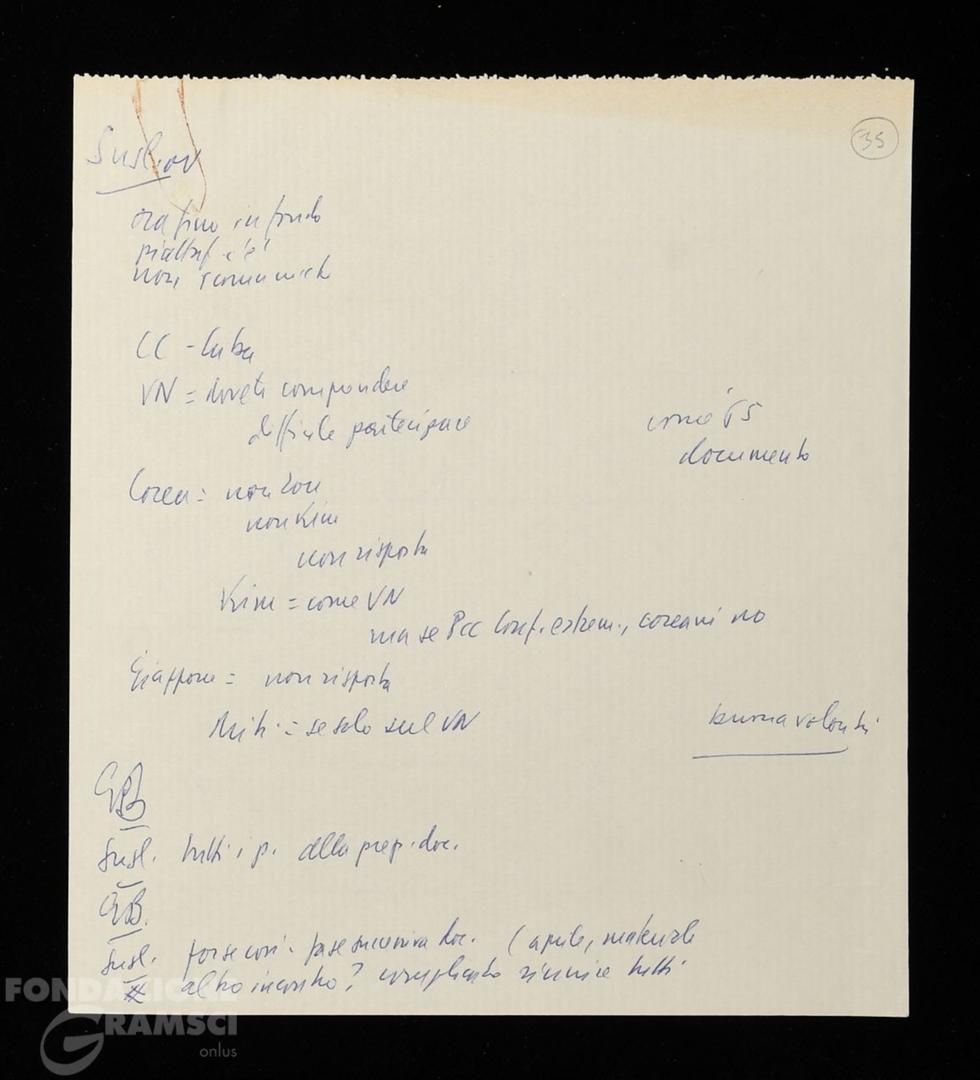 35
Suslov
ora fino in fondo
piattaf. c'è
non scomunich
CC - Cuba
VN = dovete comprendere
difficile partecipare
come 65
documento
Corea = non con
non Kim
non risposta
Kim = come VN
ma se Pcc conf. estrem., coreani no
Giappone = non risposta
= se solo sul VN
buona volontà
GB
Susl. tutti i p. alla prep. doc.
GB.
Susl. forse così - fase successiva doc. (aprile, materiale
altro incontro? complicato riunire tutti
FONDAZIONE
GRAMSCI
onlus